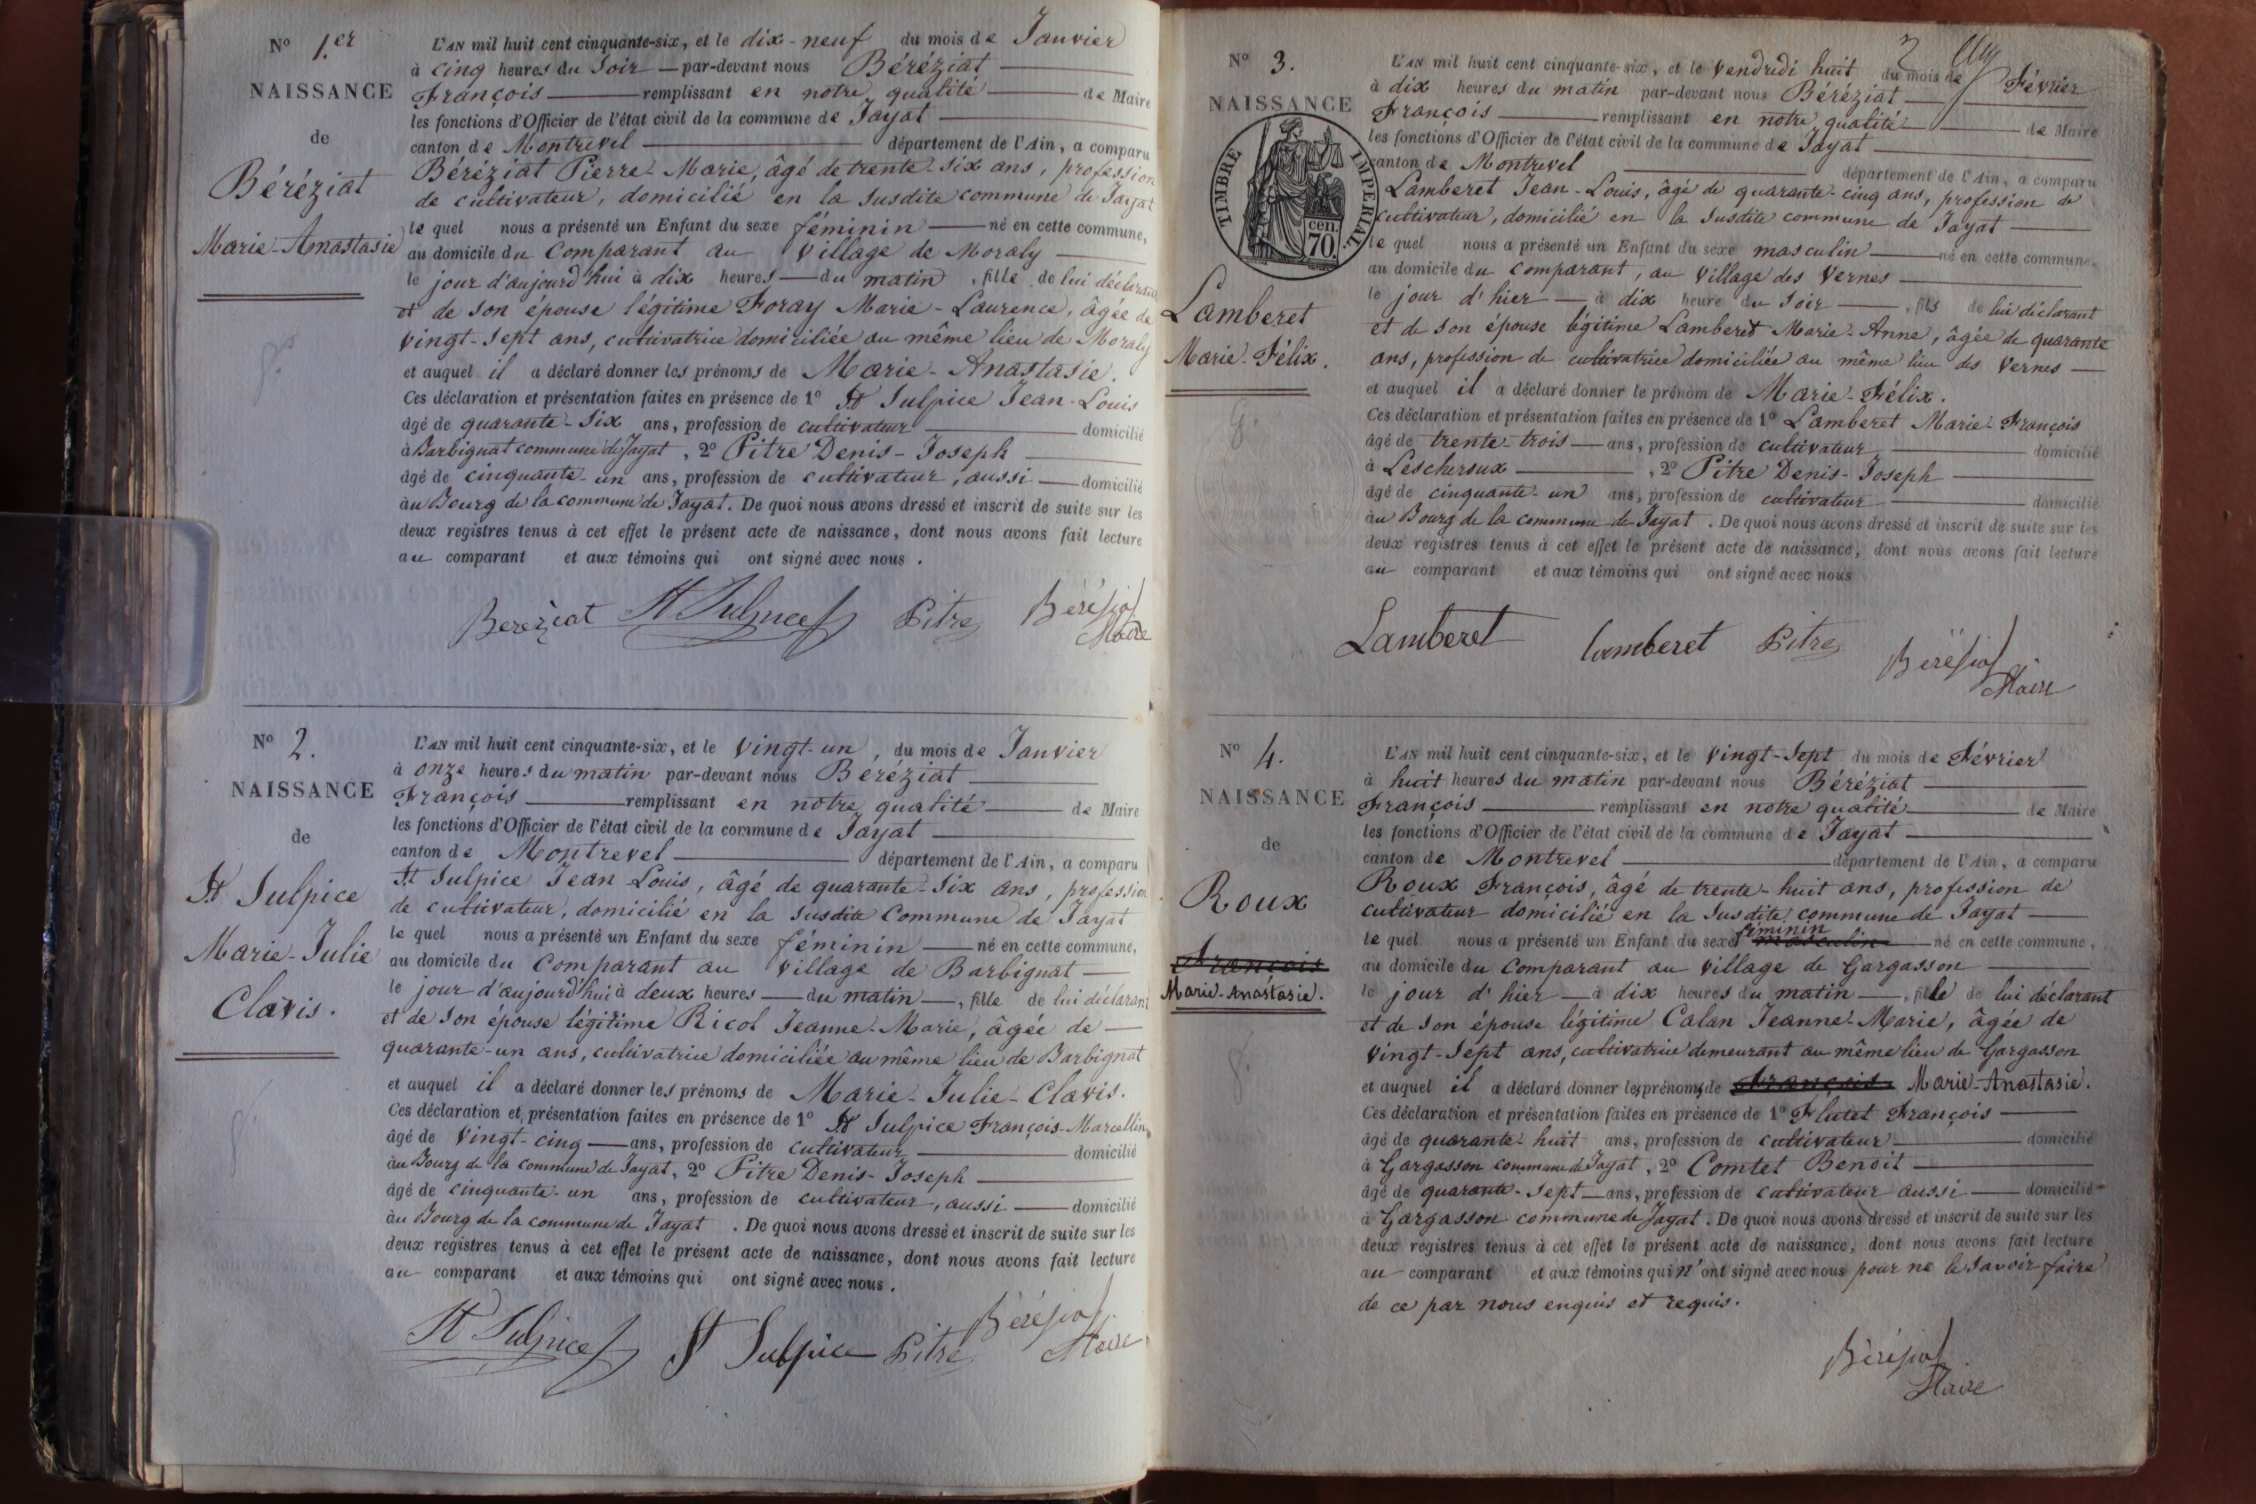 N° 1.er
NAISSANCE
de
Béréziat
Marie-Anastasie
L'AN mil huit cent cinquante-six, et le dix-neuf du mois de Janvier
à cinq heures du soir par-devant nous Béréziat
François remplissant en notre qualité de Maire
les fonctions d'Officier de l'état civil de la commune de Jayat
canton de Montrevel département de l'Ain, a comparu
Béréziat Pierre-Marie, âgé de trente-six ans, profession
de cultivateur, domicilié en la susdite commune de Jayat
le quel nous a présenté un Enfant du sexe féminin né en cette commune,
au domicile du comparant au village de Moraly
le jour d'aujourd'hui à dix heures du matin, fille de lui déclarant
et de son épouse légitime Foray Marie-Laurence, âgée de
vingt-sept ans, cultivatrice domiciliée au même lieu de Moraly
et auquel il a déclaré donner les prénoms de Marie-Anastasie.
Ces déclaration et présentation faites en présence de 1° St Sulpice Jean-Louis
âgé de quarante-six ans, profession de cultivateur domicilié
à Barbignat commune de Jayat, 2° Pitre Denis-Joseph
âgé de cinquante-un ans, profession de cultivateur, aussi domicilié
au Bourg de la commune de Jayat. De quoi nous avons dressé et inscrit de suite sur les
deux registres tenus à cet effet le présent acte de naissance, dont nous avons fait lecture
au comparant et aux témoins qui ont signé avec nous.
Berèziat St Sulpice Pitre Béréziat
Maire
N° 2.
NAISSANCE
de
St Sulpice
Marie-Julie
Clavis.
L'AN mil huit cent cinquante-six, et le vingt-un, du mois de Janvier
à onze heures du matin par-devant nous Béréziat
François remplissant en notre qualité de Maire
les fonctions d'Officier de l'état civil de la commune de Jayat
canton de Montrevel département de l'Ain, a comparu
St Sulpice Jean-Louis, âgé de quarante-six ans, profession
de cultivateur, domicilié en la susdite commune de Jayat
le quel nous a présenté un Enfant du sexe féminin né en cette commune,
au domicile du comparant au village de Barbignat
le jour d'aujourd'hui à deux heures du matin, fille de lui déclarant
et de son épouse légitime Ricol Jeanne-Marie, âgée de
quarante-un ans, cultivatrice domiciliée au même lieu de Barbignat
et auquel il a déclaré donner les prénoms de Marie-Julie-Clavis.
Ces déclaration et présentation faites en présence de 1° St Sulpice François-Marcellin
âgé de vingt-cinq ans, profession de cultivateur domicilié
au Bourg de la commune de Jayat, 2° Pitre Denis-Joseph
âgé de cinquante-un ans, profession de cultivateur, aussi domicilié
au Bourg de la commune de Jayat. De quoi nous avons dressé et inscrit de suite sur les
deux registres tenus à cet effet le présent acte de naissance, dont nous avons fait lecture
au comparant et aux témoins qui ont signé avec nous.
St Sulpice St Sulpice Pitre Béréziat
Maire
2
N° 3.
NAISSANCE
TIMBRE IMPERIAL.
cen.
70.
Lamberet
Marie-Félix.
L'AN mil huit cent cinquante-six, et le vendredi huit du mois de Février
à dix heures du matin par-devant nous Béréziat
François remplissant en notre qualité de Maire
les fonctions d'Officier de l'état civil de la commune de Jayat
canton de Montrevel département de l'Ain, a comparu
Lamberet Jean-Louis, âgé de quarante-cinq ans, profession de
cultivateur, domicilié en la susdite commune de Jayat
le quel nous a présenté un Enfant du sexe masculin né en cette commune,
au domicile du comparant, au village des Vernes
le jour d'hier à dix heure du soir, fils de lui déclarant
et de son épouse légitime Lamberet Marie-Anne, âgée de quarante
ans, profession de cultivatrice domiciliée au même lieu des Vernes
et auquel il a déclaré donner le prénom de Marie-Félix.
Ces déclaration et présentation faites en présence de 1° Lamberet Marie-François
âgé de trente-trois ans, profession de cultivateur domicilié
à Lescheroux, 2° Pitre Denis-Joseph
âgé de cinquante-un ans, profession de cultivateur domicilié
au Bourg de la commune de Jayat. De quoi nous avons dressé et inscrit de suite sur les
deux registres tenus à cet effet le présent acte de naissance, dont nous avons fait lecture
au comparant et aux témoins qui ont signé avec nous
Lamberet Lamberet Pitre Béréziat
Maire
N° 4.
NAISSANCE
de
Roux
François
Marie-Anastasie.
L'AN mil huit cent cinquante-six, et le vingt-sept du mois de Février
à huit heures du matin par-devant nous Béréziat
François remplissant en notre qualité de Maire
les fonctions d'Officier de l'état civil de la commune de Jayat
canton de Montrevel département de l'Ain, a comparu
Roux François, âgé de trente-huit ans, profession de
cultivateur domicilié en la susdite commune de Jayat
féminin
le quel nous a présenté un Enfant du sexe masculin né en cette commune,
au domicile du comparant au village de Gargasson
le jour d'hier à dix heures du matin, fille de lui déclarant
et de son épouse légitime Calan Jeanne-Marie, âgée de
vingt-sept ans, cultivatrice demeurant au même lieu de Gargasson
et auquel il a déclaré donner les prénoms de François Marie-Anastasie.
Ces déclaration et présentation faites en présence de 1° Flutet François
âgé de quarante-huit ans, profession de cultivateur domicilié
à Gargasson commune de Jayat, 2° Comtet Benoit
âgé de quarante-sept ans, profession de cultivateur aussi domicilié
à Gargasson commune de Jayat. De quoi nous avons dressé et inscrit de suite sur les
deux registres tenus à cet effet le présent acte de naissance, dont nous avons fait lecture
au comparant et aux témoins qui n'ont signé avec nous pour ne le savoir faire
de ce par nous enquis et requis.
Béréziat
Maire